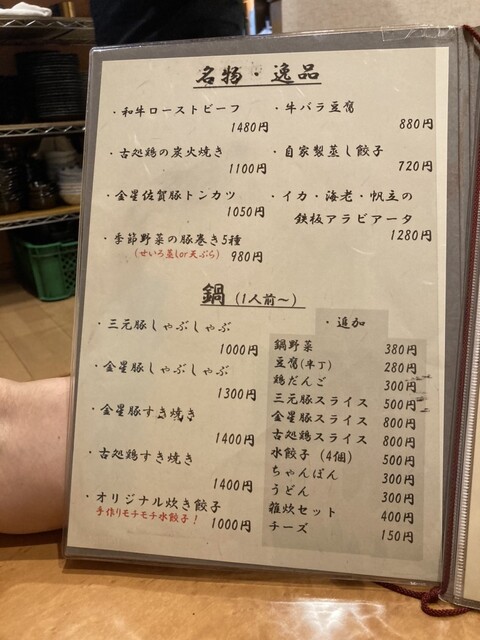 名物・逸品
・和牛ローストビーフ
1480円
・牛バラ豆腐
880円
・古処鶏の炭火焼き
1100円
・自家製蒸し餃子
720円
・金星佐賀豚トンカツ
1050円
・イカ・海老・帆立の
鉄板アラビアータ
1280円
・季節野菜の豚巻き5種
(せいろ蒸しor天ぷら) 980円
鍋 (1人前〜)
・三元豚しゃぶしゃぶ
1000円
・金星豚しゃぶしゃぶ
1300円
・金星豚すき焼き
1400円
・古処鶏すき焼き
1400円
・オリジナル炊き餃子
手作りモチモチ水餃子! 1000円
・追加
鍋野菜 380円
豆腐(半丁) 280円
鶏だんご 300円
三元豚スライス 500円
金星豚スライス 800円
古処鶏スライス 800円
水餃子 (4個) 500円
ちゃんぽん 300円
うどん 300円
雑炊セット 400円
チーズ 150円